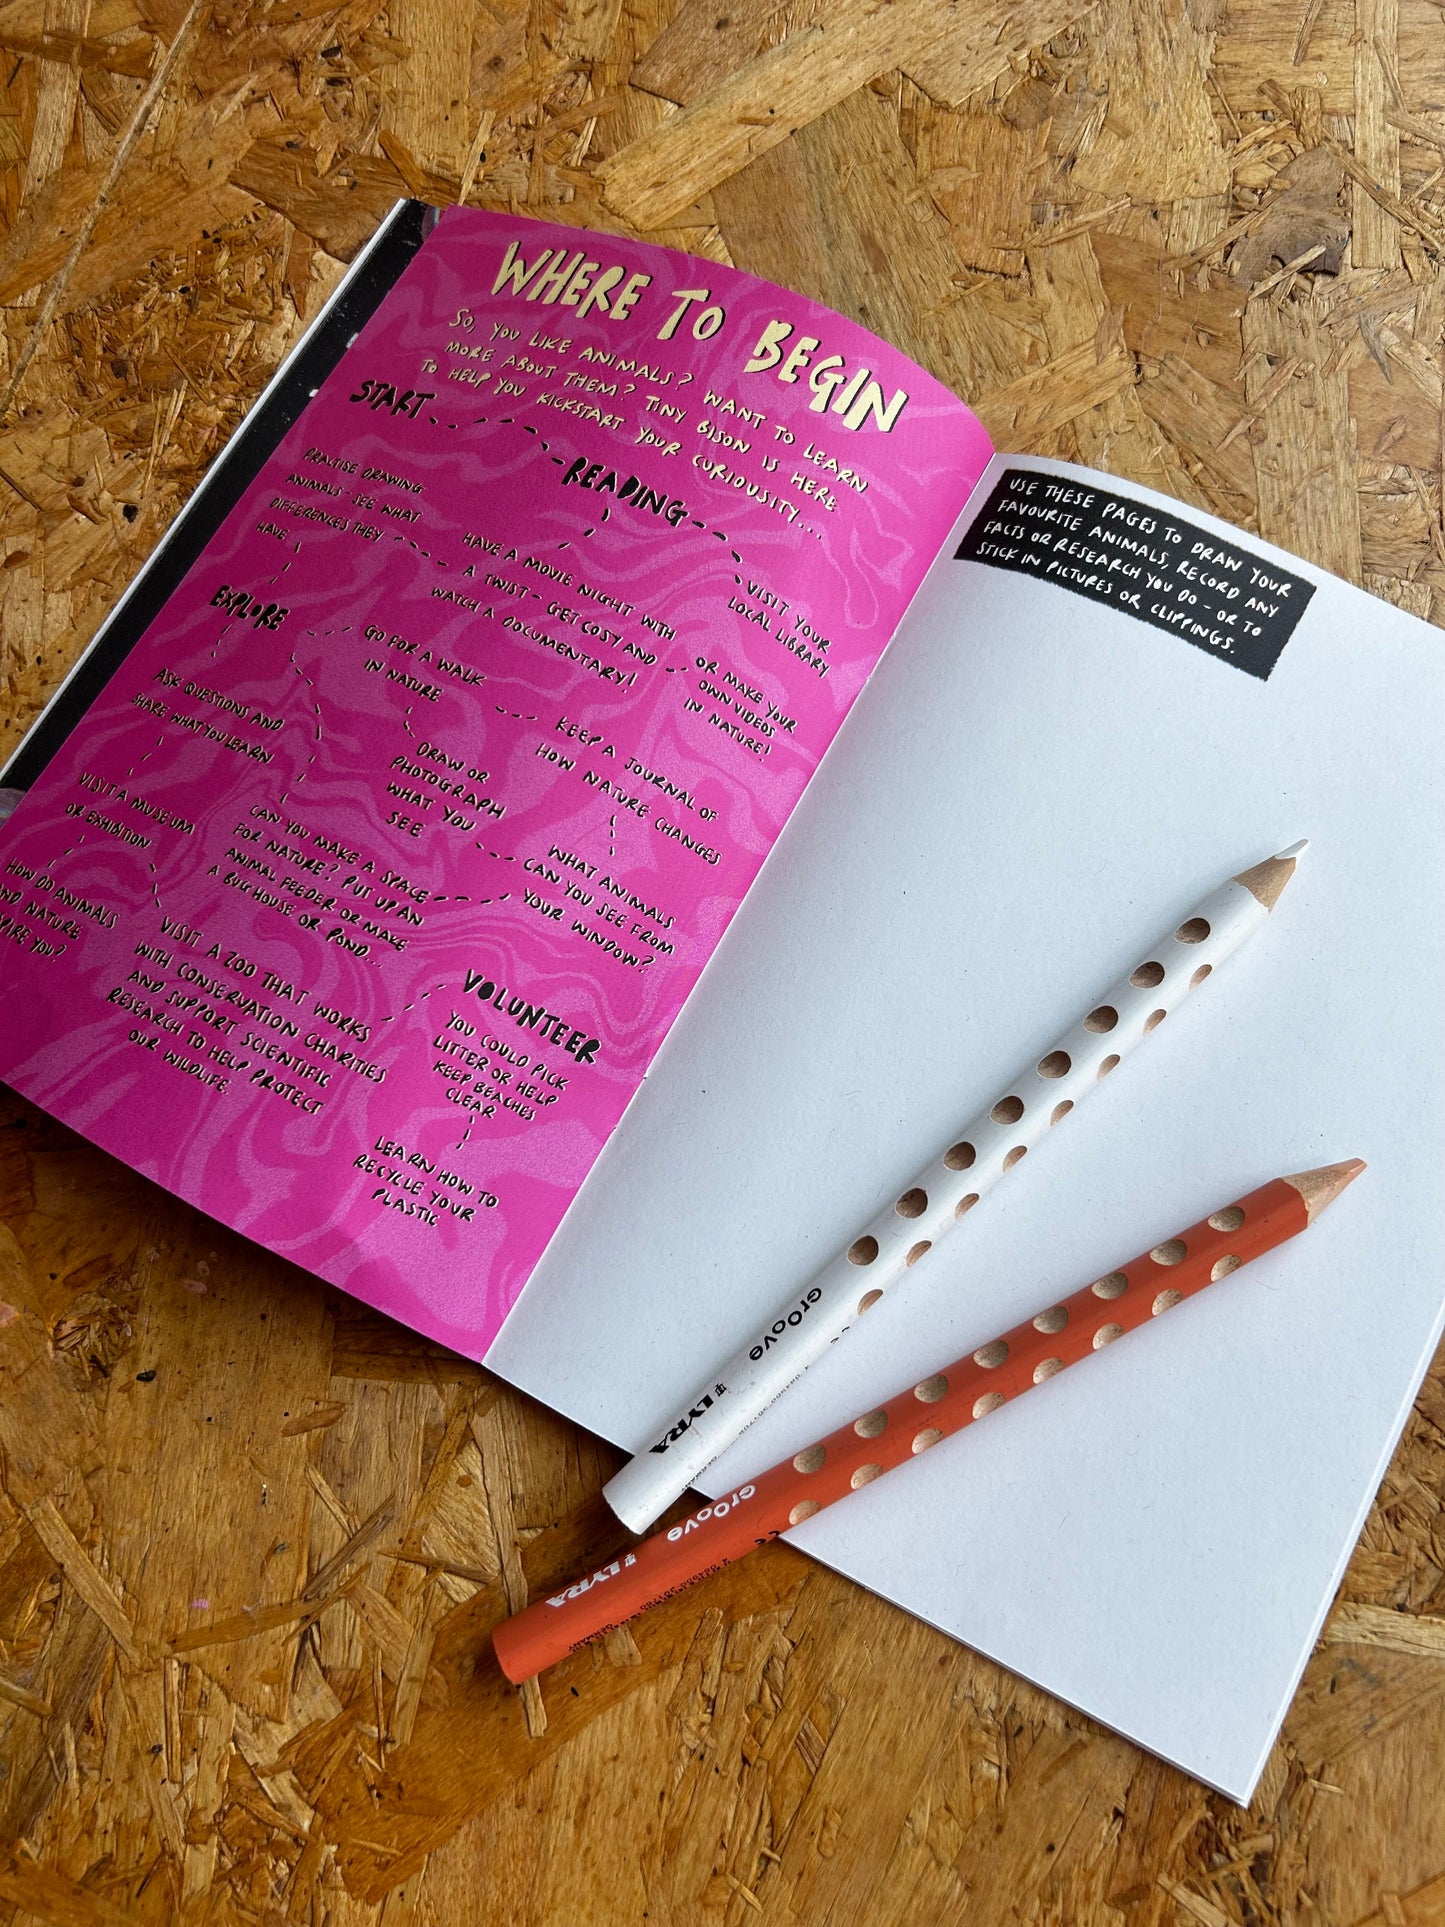 WHERE TO BEGIN
SO, YOU LIKE ANIMALS? WANT TO LEARN
MORE ABOUT THEM? TINY BISON IS HERE
TO HELP YOU KICKSTART YOUR CURIOUSITY...
START
READING
PRACTISE DRAWING
ANIMALS - SEE WHAT
DIFFERENCES THEY
HAVE
HAVE A MOVIE NIGHT WITH
A TWIST - GET COSY AND
WATCH A DOCUMENTARY!
VISIT YOUR
LOCAL LIBRARY
OR MAKE YOUR
OWN VIDEOS
IN NATURE!
EXPLORE
GO FOR A WALK
IN NATURE
KEEP A JOURNAL OF
HOW NATURE CHANGES
ASK QUESTIONS AND
SHARE WHAT YOU LEARN
DRAW OR
PHOTOGRAPH
WHAT YOU
SEE
VISIT A MUSEUM
OR EXHIBITION
CAN YOU MAKE A SPACE
FOR NATURE? PUT UP AN
ANIMAL FEEDER OR MAKE
A BUG HOUSE OR POND...
WHAT ANIMALS
CAN YOU SEE FROM
YOUR WINDOW?
HOW DO ANIMALS
AND NATURE
YOU?
VISIT A ZOO THAT WORKS
WITH CONSERVATION CHARITIES
AND SUPPORT SCIENTIFIC
RESEARCH TO HELP PROTECT
OUR WILDLIFE.
VOLUNTEER
YOU COULD PICK
LITTER OR HELP
KEEP BEACHES
CLEAR
LEARN HOW TO
RECYCLE YOUR
PLASTIC
USE THESE PAGES TO DRAW YOUR
FAVOURITE ANIMALS, RECORD ANY
FACTS OR RESEARCH YOU DO - OR TO
STICK IN PICTURES OR CLIPPINGS.
LYRA Groove
LYRA Groove